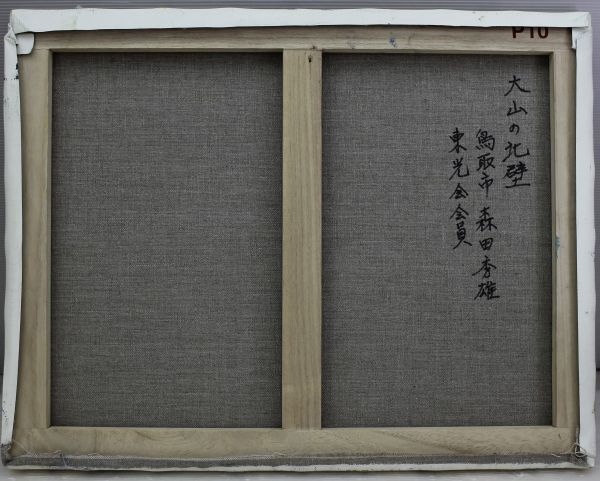 P10
大山の北壁
鳥取市 森田秀雄
東光会会員